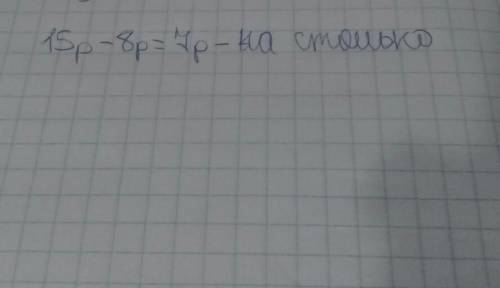 15р - 8р = 7р - на столько